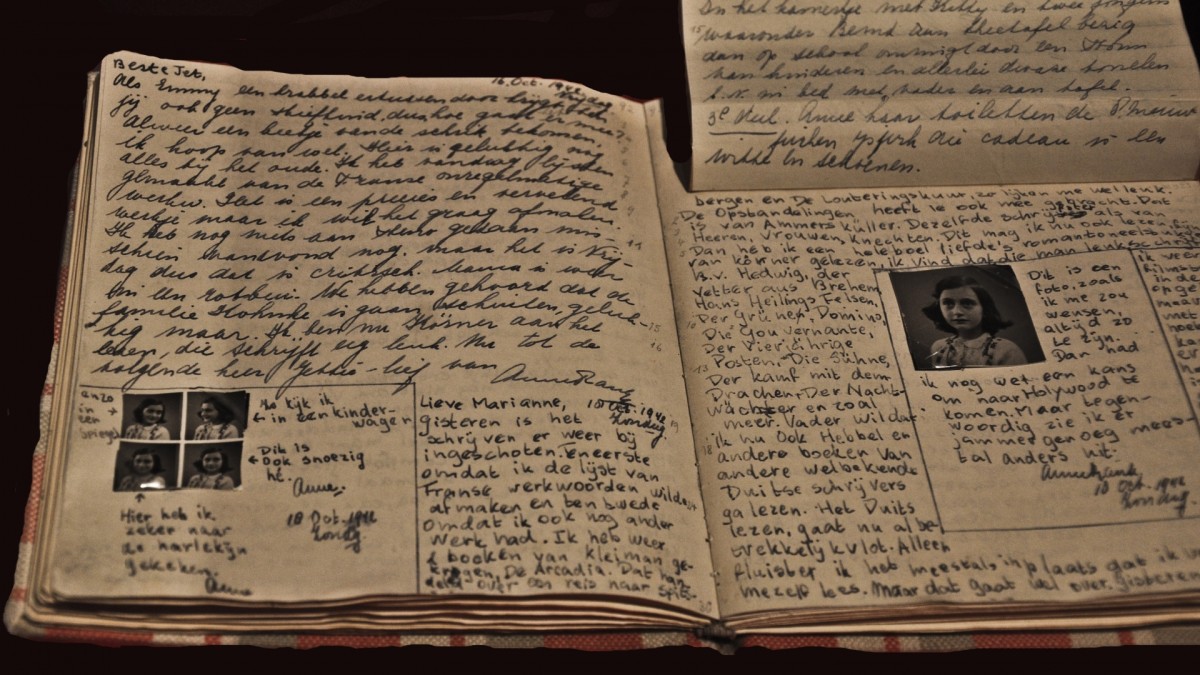 Beste Jet,
16. Oct. 1942.
Als Emmy een krabbel ertussendoor krijgt,
jij ook geen stiefkind, dus hoe gaat
Alweer een beetje van de schrik bekomen,
ik hoop van wel. Hier is gelukkig nog
alles bij het oude. Ik heb vandaag lijsten
gemaakt van de Franse onregelmatige
werkw. Het is een precies en vervelend
werkje maar ik wil het graag afmaken.
Ik heb nog niets aan steno gedaan mis-
schien vanavond nog, maar het is Vrij-
dag dus dat is critisch. Mama is weer
We hebben gehoord dat de
familie is gaan schuilen, geluk-
kig maar. Ik ben nu Körner aan het
lezen, die schrijft erg leuk. Nu tot de
volgende keer, van
Anne Frank
anzo
in
een
Spiegel
Zo kijk ik
in een kinder-
wagen
Dit is
ook snoezig
hè.
Anne.
Hier heb ik
zeker naar
de harlekijn
gekeken.
Anne
18 Oct. 1942
Zondag
Lieve Marianne,
18 Oct. 1942
Zondag.
gisteren is het
schrijven er weer bij
ingeschoten. Eneerste
omdat ik de lijst van
Franse werkwoorden wilde
afmaken en ten twede
omdat ik ook nog ander
werk had. Ik heb weer
2 boeken van Kleiman ge-
kregen, De Arcadia. Dat han-
deld over een reis naar Spits-
In het kamertje met Kitty en twee jongens
waaronder Bernd aan theetafel bezig
dan op school omringd door een
kinderen en allerlei dwaze
in bed met, vader en aan tafel.
3e Deel. Anne haar toiletten de
die cadeau is een
witte en schoenen.
bergen en De Louteringskuur, zo lijken me wel leuk.
De Opstandelingen heeft ie ook mee gebracht. Dat
is van Ammers Küller. Dezelfde schrijfster als van
Heeren, Vrouwen, Knechten. Dit mag ik nu ook lezen
Dan heb ik een heleboel liefde's romantoneelst
van körner gelezen, ik vind dat die man leuk schrijft
B.v. Hedwig, der
Vetter aus Brehem,
Hans Heilings Felsen,
Der Grüner Domino,
Die Gouvernante,
Der Vierjährige
Posten, Die Sühne,
Der kamf mit dem
Drachen, Der Nacht-
wächter en zoal
meer. Vader wil dat
ik nu ook Hebbel en
andere boeken van
andere welbekende
Duitse schrijvers
ga lezen. Het Duits
lezen, gaat nu al be-
trekkelijk vlot. Alleen
fluister ik het meestal in plaats dat ik v
mezelf lees. Maar dat gaat wel over. Gisteren
Dit is een
foto, zoals
ik me zou
wensen,
altijd zo
te zijn.
Dan had
ik nog wel een kans
om naar Holywood te
komen. Maar tegen-
woordig zie ik er
jammer genoeg mees-
tal anders uit.
Annefrank
18 Oct. 1942
Zondag